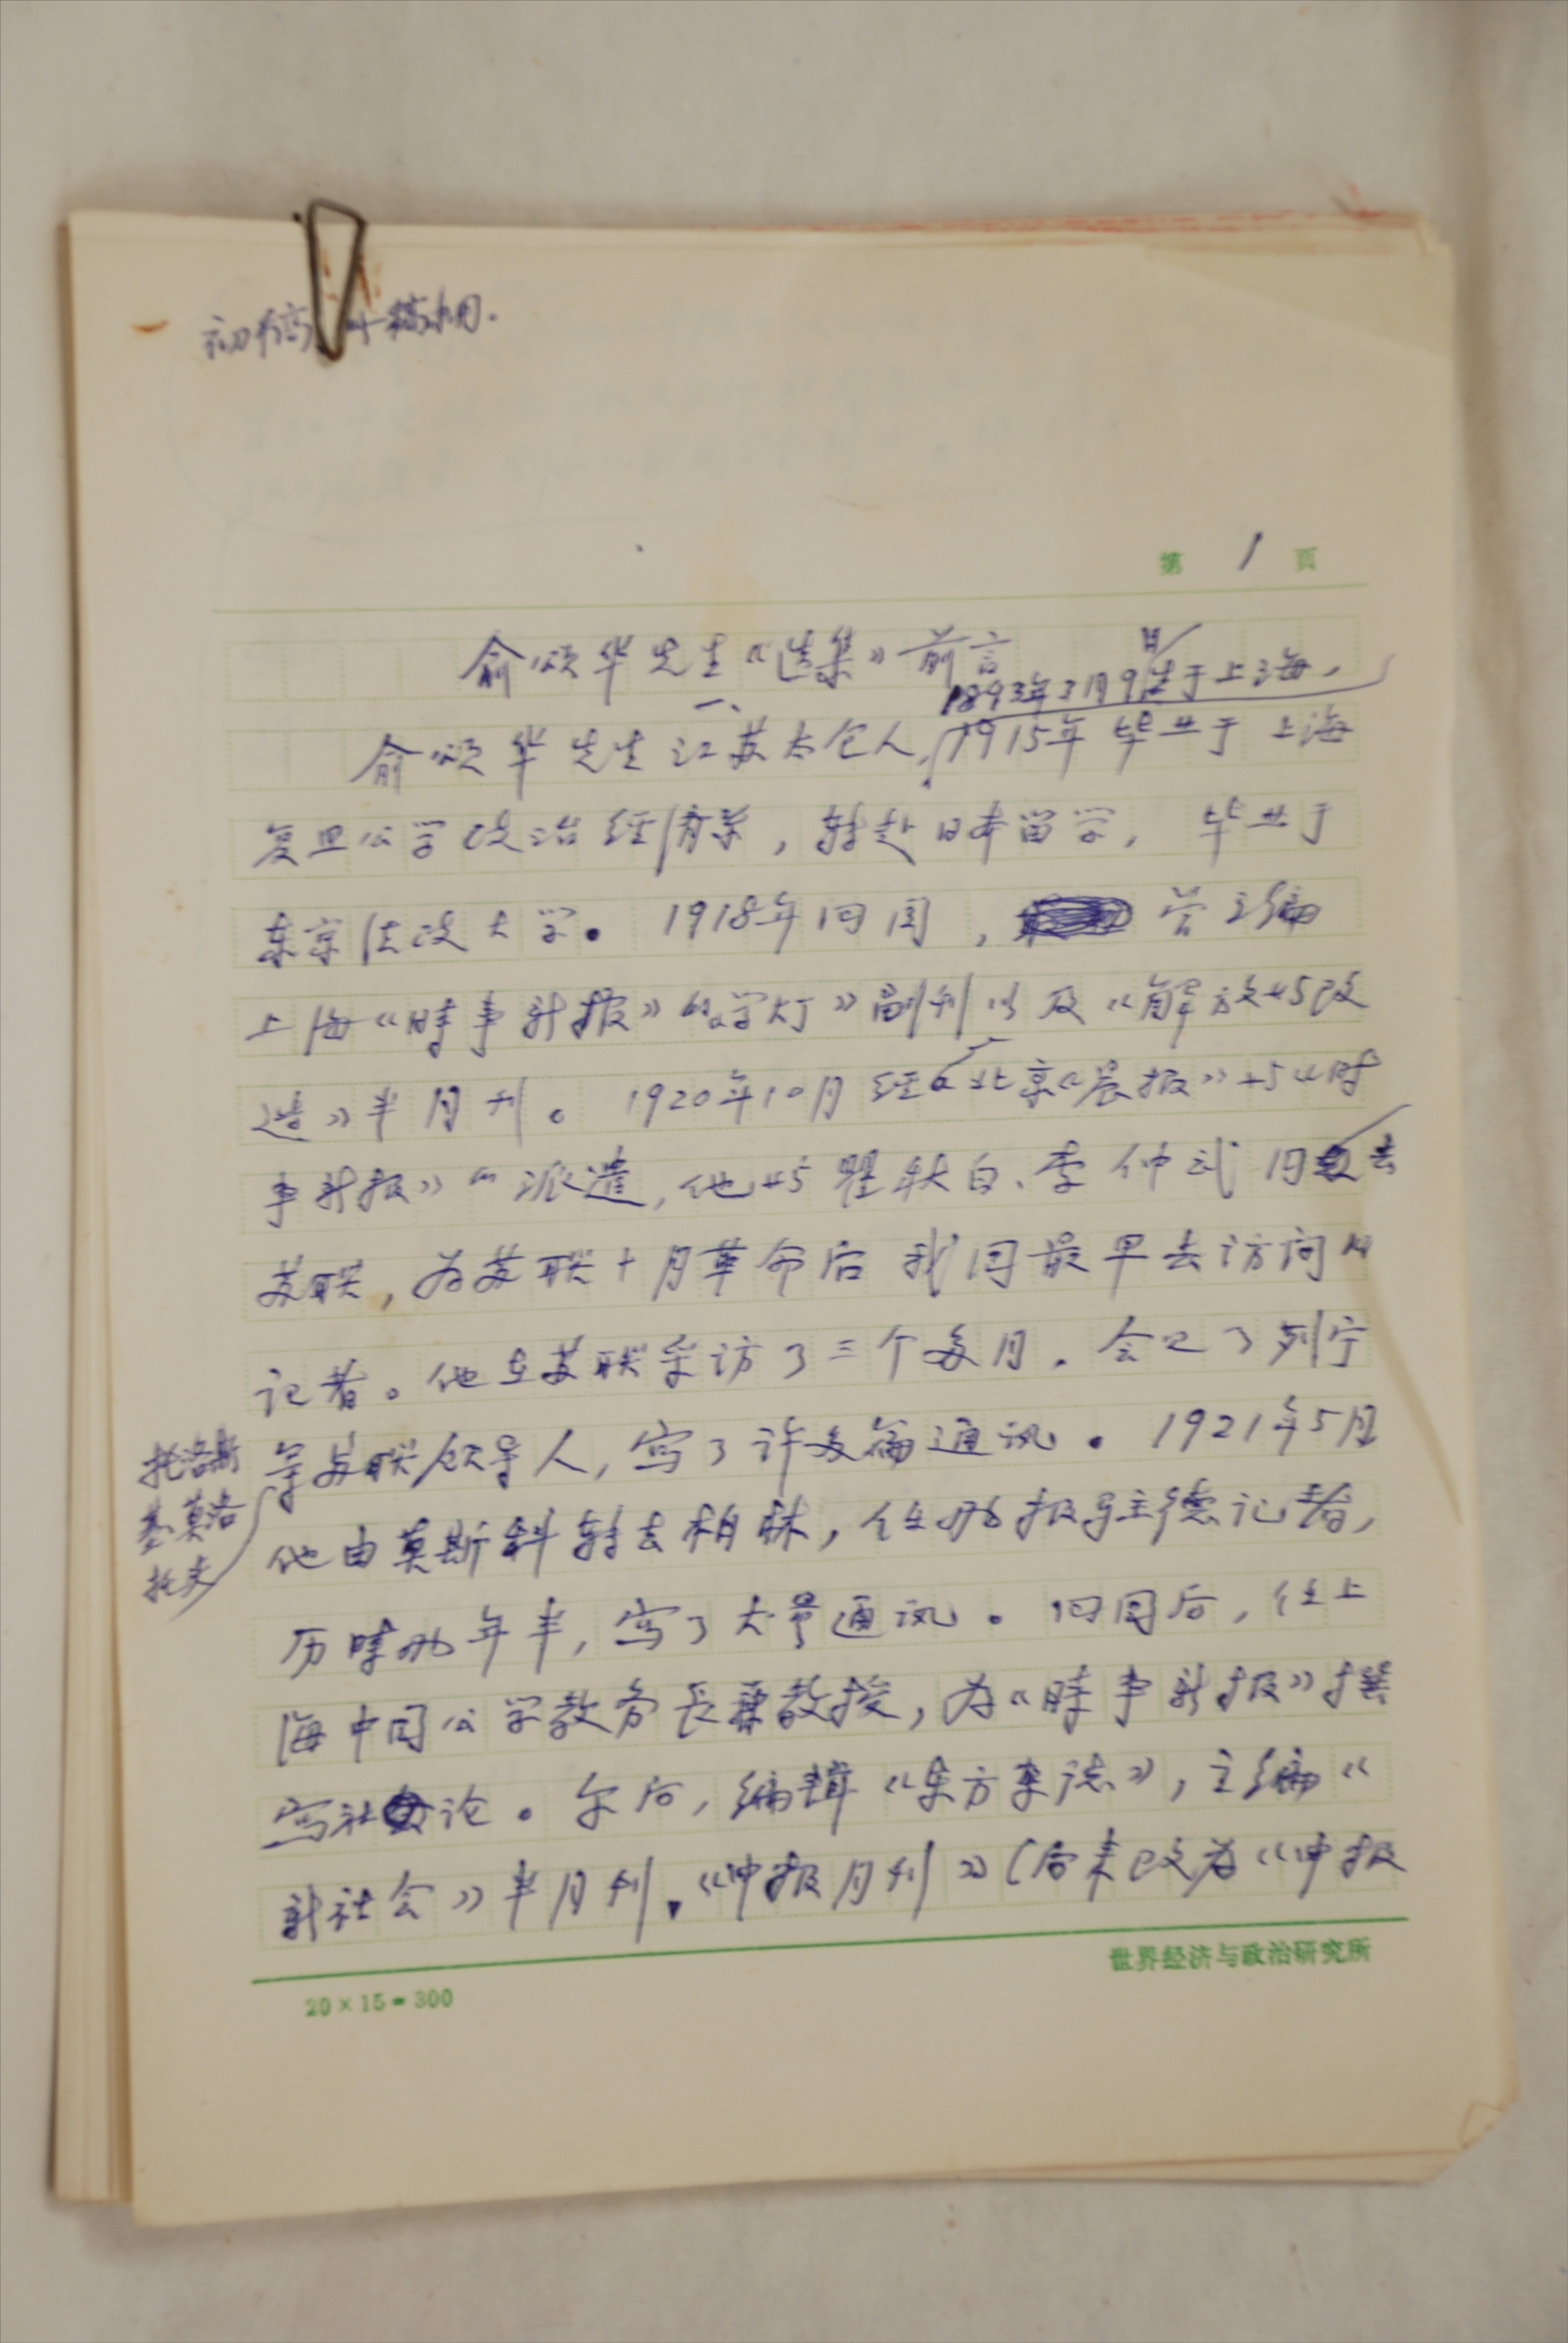 初稿
第 1 页
俞颂华先生《选集》前言
一、
1893年3月9日生于上海,
俞颂华先生江苏太仓人,1915年毕业于上海
复旦公学政治经济系,转赴日本留学, 毕业于
东京法政大学。1918年回国, 曾主编
上海《时事新报》“学灯”副刊以及《解放与改
造》半月刊。1920年10月经北京《晨报》与《时
事新报》的派遣,他与瞿秋白、李仲武同去
苏联,为苏联十月革命后我国最早去访问的
记者。他在苏联采访了三个多月。会见了列宁
托洛斯
基莫洛
托夫
等苏联领导人,写了许多篇通讯。1921年5月
他由莫斯科转去柏林,任两报驻德记者,
历时两年半,写了大量通讯。回国后,任上
海中国公学教务长兼教授,为《时事新报》撰
写社论。尔后,编辑《东方杂志》,主编《
新社会》半月刊,《申报月刊》(后来改为《申报
世界经济与政治研究所
20×15=300